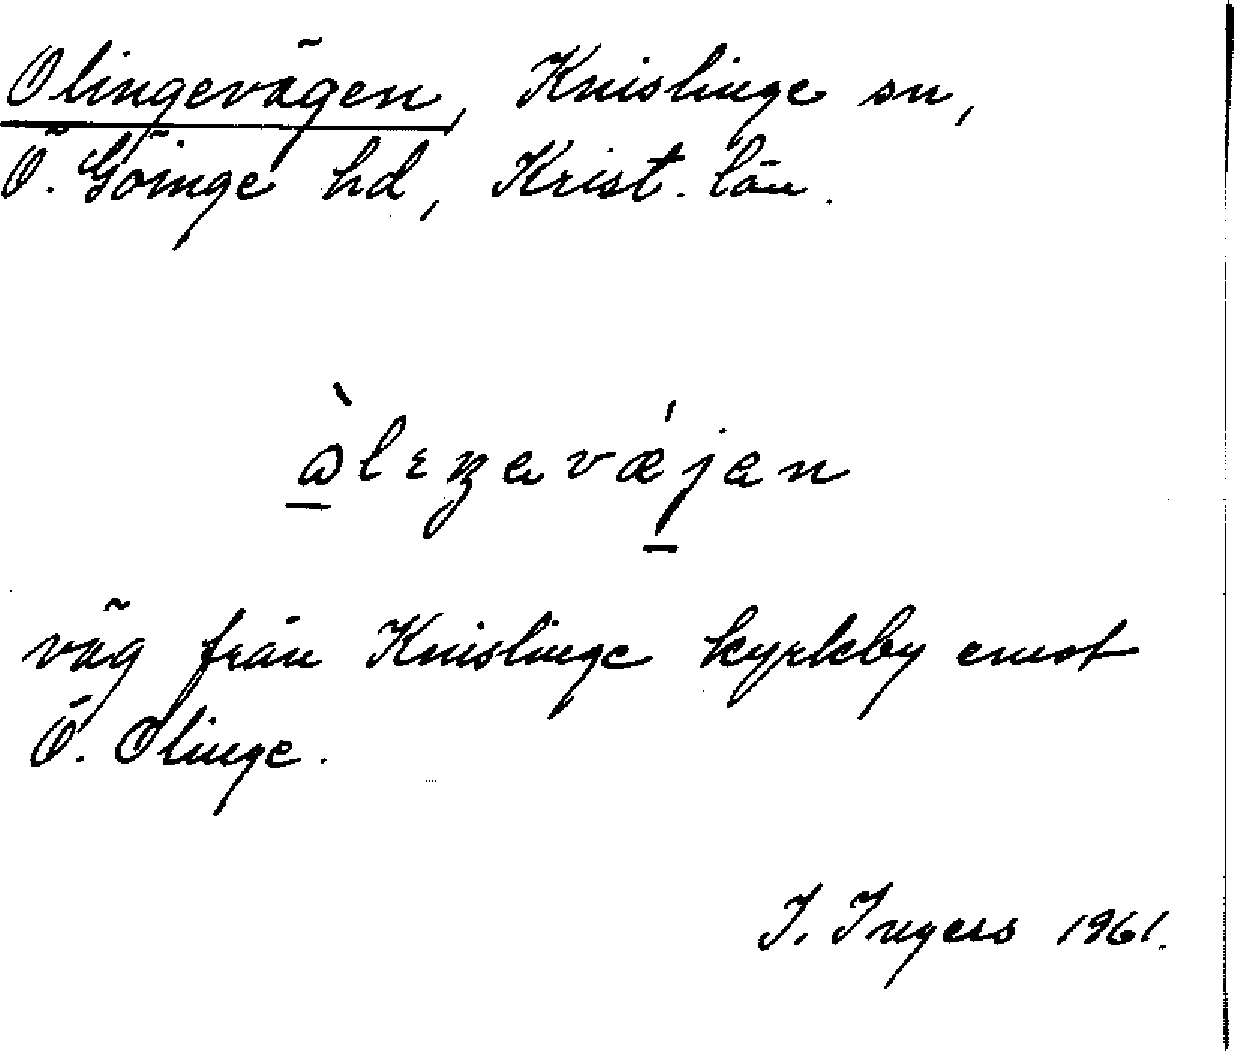 Olingevägen, Knislinge sn,
Ö. Göinge hd, Krist. län.
väg från Knislinge kyrkby emot
Ö. Olinge.
I. Ingers 1961.